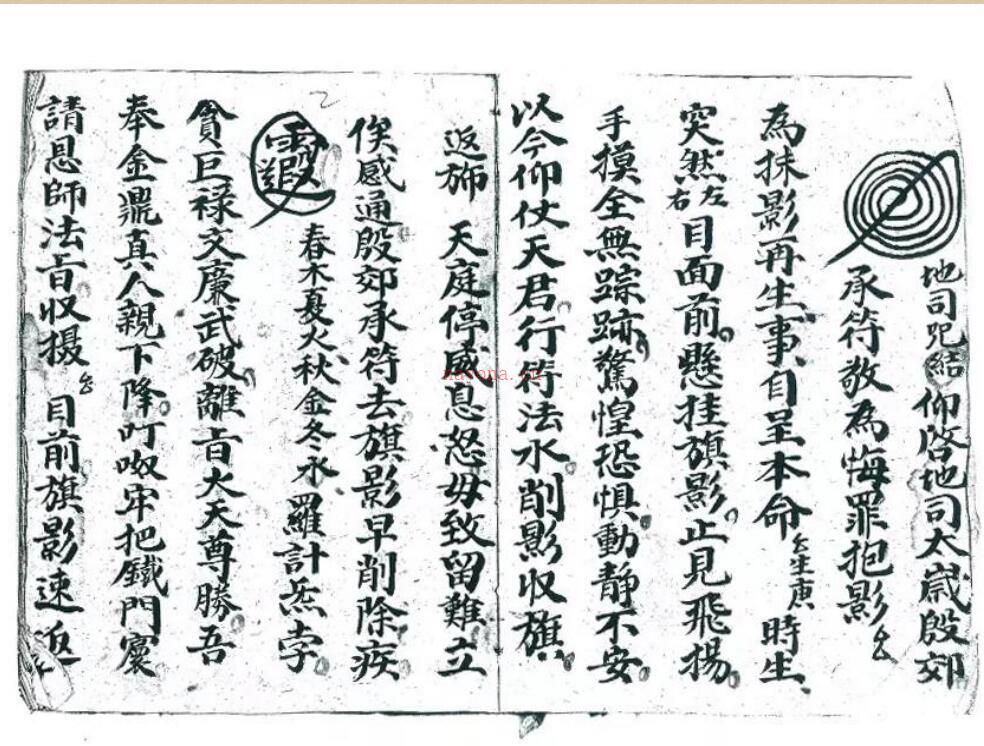 地司咒結 仰啓地司太歲殷郊
承符敬為悔罪抱影
為抹影再生事自呈本命 生庚 時生
突然左右目面前懸挂旗影止見飛揚
手摸全無踪跡驚惶恐懼動静不安
以今仰仗天君行符法水削影収旗
返斾 天庭停威息怒毋致留難立
俟感通殷郊承符去旗影早削除疾
春木夏火秋金冬水羅計炁孛
貪巨禄文廉武破離旨大天尊勝吾
奉金鼎真人親下降叮呶牢把鐵門
請恩師法旨収摄 目前旗影速返
nayona.cn